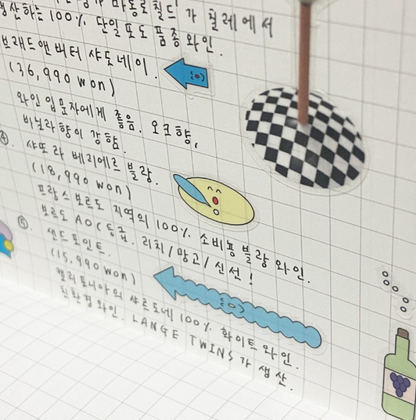 마동로칠드'가 칠레에서
생산하는 100% 단일 포도 품종 와인.
브레드앤버터 샤도네이.
(36,990 won)
와인 입문자에게 좋음. 오크향,
바닐라향이 강함.
④ 샤또라 베리에르 블랑.
(18,990 won)
프랑스 보르도 지역의 100% 소비뇽 블랑 와인.
보르도 AOC등급. 리치/망고/신선!
⑤ 샌드포인트.
(15,990 won)
캘리포니아의 샤르도네 100% 화이트 와인.
친환경 와인. LANGE TWINS가 생산.